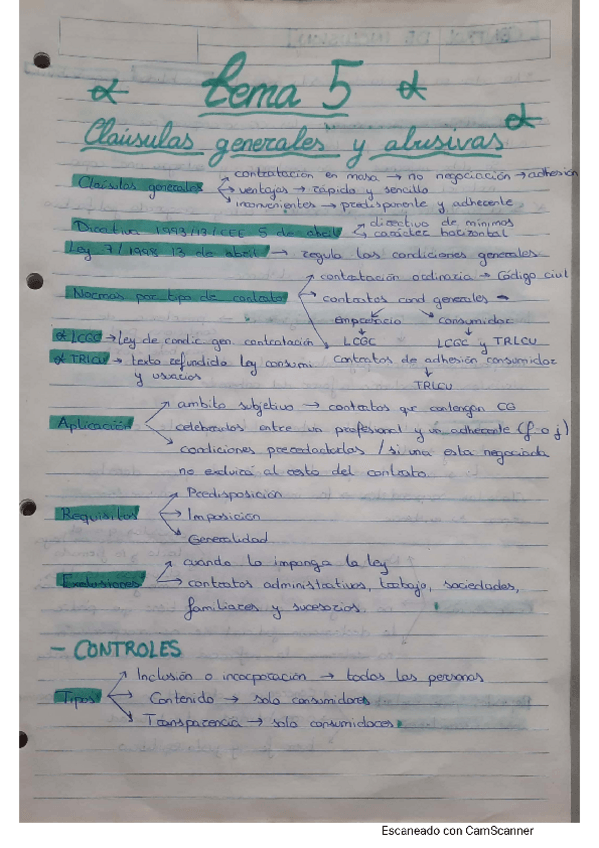 Tema 5
Claúsulas generales y abusivas
Claúsulas generales → contratación en masa → no negociación → adhesión
→ ventajas → rápido y sencillo
→ inconvenientes → predisponente y adherente
Directiva 1993/13/CEE 5 de abril → directiva de mínimos
→ carácter horizontal
Ley 7/1998 13 de abril → regula las condiciones generales
→ contratación ordinaria → Código civil
Normas por tipo de contrato → contratos cond generales →
empresario consumidor
α LCGC → ley de condic gen contratación LCGC LCGC y TRLCU
α TRLCU → texto refundido ley consumi contratos de adhesión consumidor
y usuarios TRLCU
→ ambito subjetivo → contratos que contengan CG
Aplicación celebrados entre un profesional y un adherente (f o j)
→ condiciones prerredactadas / si una esta negociada
no excluirá al resto del contrato.
→ Predisposición
Requisitos → Imposición
→ Generalidad
→ cuando lo imponga la ley
Exclusiones → contratos administrativos, trabajo, sociedades,
familiares y sucesorios.
- CONTROLES
→ Inclusión o incorporación → todas las personas
Tipos → Contenido → solo consumidores
→ Transparencia → solo consumidores
Escaneado con CamScanner